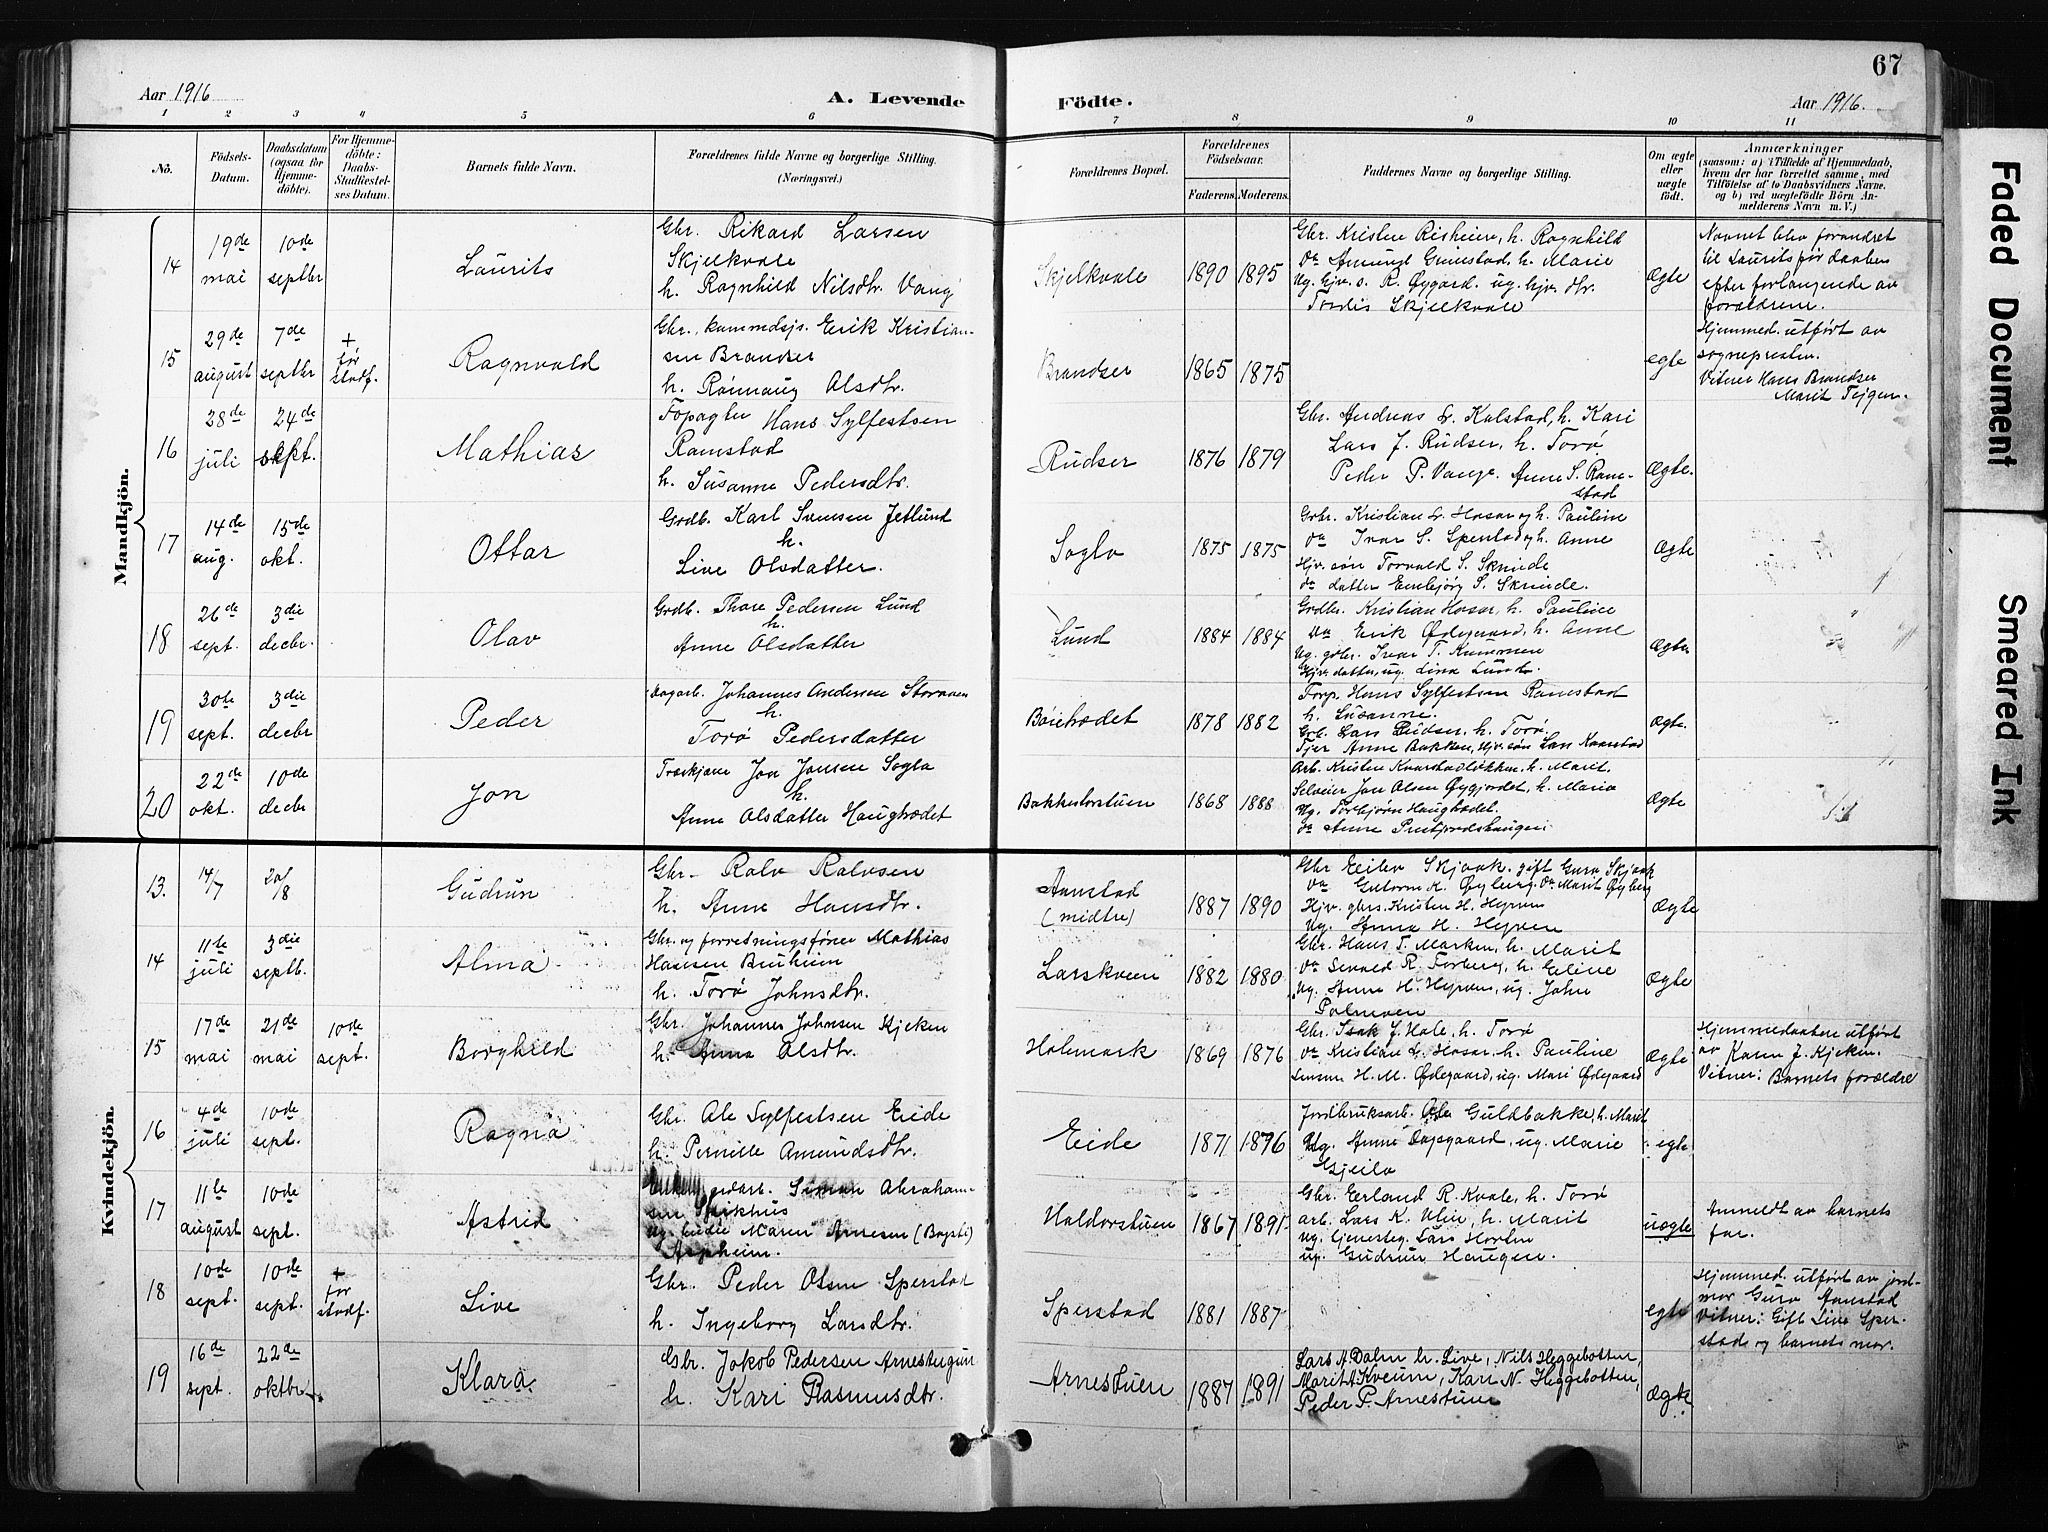 67
Aar 1916
A. Levende
Födte.
Aar 1916.
1 2 3 4 5 6 7 8 9 10 11
No.
Födsels-
Datum.
Daabsdatum
(ogsaa for
Hjemme-
döbte).
For Hjemme-
döbte:
Daabs-
Stadfæstel-
ses Datum.
Barnets fulde Navn.
Forældrenes fulde Navne og borgerlige Stilling.
(Næringsvei.)
Forældrenes Bopæl.
Forældrenes
Födselsaar.
Faderens. Moderens.
Faddernes Navne og borgerlige Stilling.
Om ægte
eller
uægte
födt.
Anmærkninger
(saasom: a) i Tilfælde af Hjemmedaab,
hvem der har forrettet samme, med
Tilföielse af to Daabsvidners Navne.
og b) ved uægtefödte Börn An-
melderens Navn m. V.)
Mandkjön.
14
19de
mai
10de
septbr
Laurits
Gbr. Rikard Larsen
Skjelkvale
h. Ragnhild Nilsdtr. Vang
Skjelkvale
1890 1895
Gbr. Kristen Risheim, h. Ragnhild
Do Amund Grimstad, h. Marie
Ug. Gjv. s. R. Øygard. ug. hjv. dtr.
Tordis Skjelkvale
Ægte
Navnet blev forandret
til Laurits før daaben
efter forlangende av
forældrene.
15
29de
august
7de
septbr
+
før
stadf.
Ragnvald
Gbr., kummdsjs. Erik Kristian-
sen Brandser
h. Rønnaug Olsdtr.
Brandser
1865 1875
egte
Hjemmed. utført av
sognepresten.
Vitner Hans Brandser
Marit Teigen.
16
28de
juli
24de
sept.
Mathias
Hans Sylfestsen
Ramstad
h. Susanne Pedersdtr.
Rudser
1876 1879
Gbr. Andreas Kalstad, h. Kari
Lars J. Rudser, h. Torø
Peder P. Vange. Anne S. Ram-
stad
Ægte.
17
14de
aug.
15de
okt.
Ottar
Grdb. Karl Svensen Jetlund
h.
Live Olsdatter.
Sogla
1875 1875
Grbr. Kristian Hosar og h. Pauline
Do Ivar S. Sperstad, h. Anne
Hjv. søn Torvald S. Skrinde
Do datter Embjørg S. Skrinde.
Ægte
18
26de
sept.
3die
decbr.
Olav
Grdb. Thore Pedersen Lund
h.
Anne Olsdatter
Lund
1884 1884
Grdbr. Kristian Hosar, h. Pauline
Do Erik Ødegaard, h. Anne
Ug. gbr. Ivar T. Kummen
Hjv. datter, ug. Lina Lund.
Ægte
19
30te
sept.
3die
decbr
Peder
Dagarb. Johannes Andersen
h.
Torø Pedersdatter
1878 1882
Torp. Hans Sylfestsen Ramstad
h. Susanne.
Grb. Lars Rudser, h. Torø.
Tjer Anne Bakken, Hjv. søn Lars Kvarstad
Ægte.
20
22de
okt.
10de
decbr
Jon
Træskjære Jon Jonsen Sogla
h.
Anne Olsdatter Haugbrødet
Bakkestorstuen
1868 1888
Arb. Kristen Kvarstadløkken, h. Marit.
Selveier Jon Olsen Øygjordet, h. Maria
Ug. Torbjørn
Do Anne
Ægte
Kvindekjön.
13.
14/7
20/8
Gudrun
Gbr. Rolv Rolvsen
h. Anne Hansdtr.
Aamstad
(midtre)
1887 1890
Gbr Eilev Skjaak. gift Guro Skjaak
Do Guttorm K. Øyberg. Do Marit Øyberg
Hjv. gbrs. Kristen H. Hyrven
Ug. Anna H. Hyrven
Ægte
14
11te
juli
3die
septb.
Alma
Gbr. og forretningsfører Mathias
Hansen Bruheim
h. Torø Johnsdtr.
Larskveen
1882 1880
Gbr. Hans T. Marken, h. Marit
Do Sevald R. Forberg, h. Eline
Ug. Anna H. Hyrven, ug. John
Polmoen
Ægte
15
17de
mai
21de
mai
10de
sept.
Borghild
Gbr. Johannes Johnsen Kjeken
h. Anna Olsdtr.
Holemark
1869 1876
Gbr. Isak J. Hole, h. Torø
Do Kristian Hosar, h. Pauline
H. M. Ødegaard, ug. Mari Ødegaard
Ægte
Hjemmedaaben utført
av Karen J. Kjeken.
Vitner: Barnets forældre
16
4de
juli
10de
sept.
Ragna
Gbr. Ole Sylfestsen Eide
h. Pernille Amundsdtr.
Eide
1871 1876
Jordbruksarb. Ole Guldbakke, h. Marit
Ug. Anne Dagsgaard, ug. Marie
Gjeilo
egte
17
11te
august
10de
sept.
Astrid
gardarb. Simon Abraham-
sen
Ug. Maren Arnesen
Aspheim.
Haldorstuen
1867 1891
Gbr. Erland R. Kvale, h. Torø
arb. Lars K. Ulin, h. Marit
Ug. tjenesteg. Lars
ug. Gudrun Haugen.
uægte
Anmeldt av barnets
far.
18
10de
sept.
10de
sept.
+
før
stadf.
Live
Gbr. Peder Olsen Sperstad
h. Ingeborg Larsdtr.
Sperstad
1881 1887
egte
Hjemmed. utført av jord-
mor Guro Aamstad
Vitner: Gift Live Sper-
stad og barnets mor.
19
16de
sept.
22de
oktbr.
Klara
Gbr. Jakob Pedersen Arnestugun
h. Kari Rasmusdtr.
Arnestuen
1887 1891
Lars A Dalen h. Live, Nils Heggebotten,
Marit A Kveum, Kari N. Heggebotten,
Peder P. Arnestuen
Ægte
Faded Document
Smeared Ink